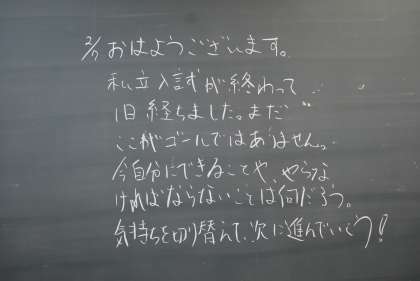 2/7 おはようございます。
私立入試が終わって
1日経ちました。まだ
ここがゴールではありません。
今自分にできることや、やらな
ければならないことは何だろう。
気持ちを切り替えて、次に進んでいこう!